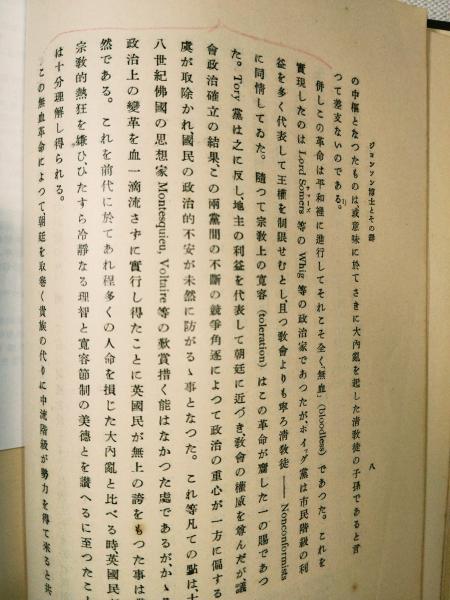 ジョンソン博士とその群
八
の中樞となつたものは、或意味に於てさきに大內亂を起した淸敎徒の子孫であると言
つて差支ないのである。
併しこの革命は平和裡に進行してそれこそ全く「無血」(bloodless)であつた。これを
實現したのは Lord Somers 等の Whig 等の政治家であつたが、ホイッグ黨は市民階級の利
益を多く代表して王權を制限せむとし、且つ敎會よりも寧ろ淸敎徒 —— Nonconformists
に同情してゐた。隨つて宗敎上の寬容 (toleration) はこの革命が齎した一の賜であつ
た。Tory 黨は之に反し、地主の利益を代表して朝廷に近づき、敎會の權威を尊んだが、議
會政治確立の結果、この兩黨間の不斷の競爭角逐によつて政治の重心が一方に偏する
虞が取除かれ、國民の政治的不安が未然に防がるゝ事となつた。これ等凡ての點は、十
八世紀佛國の思想家 Montesquieu, Voltaire 等の歎賞措く能はなかつた處であるが、かゝる
政治上の變革を血一滴流さずに實行し得たことに英國民が無上の誇をもつた事は
然である。これを前代に於てあれ程多くの人命を損じた大內亂と比べる時英國民
宗敎的熱狂を嫌ひ、ひたすら冷靜なる理智と寬容節制の美德とを讚へるに至つたこ
は十分理解し得られる。
この無血革命によつて、朝廷を取卷く貴族の代りに中流階級が勢力を得て來ると共